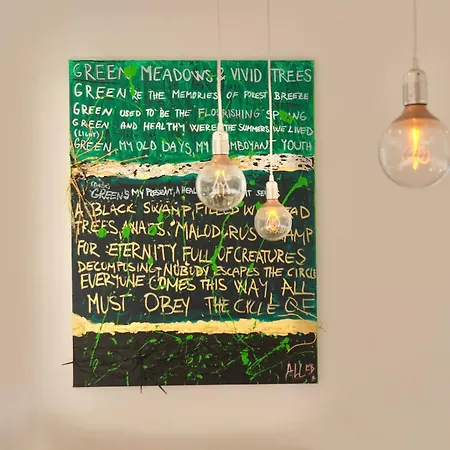 GREEN MEADOWS & VIVID TREES
GREEN RE THE MEMORIES OF FOREST BREEZE
GREEN USED TO BE THE FLOURISHING SPRING
GREEN AND HEALTHY WERE THE SUMMERS WE LIVED
(LIGHT)
GREEN, MY OLD DAYS, MY YOUTH
GREEN'S MY PRESENT, A
A BLACK SWAMP, FILLED
TREES,
FOR ETERNITY, FULL OF CREATURES
DECOMPOSING. NOBODY ESCAPES THE CIRCLE
EVERYONE COMES THIS WAY, ALL
MUST OBEY THE CYCLE OF